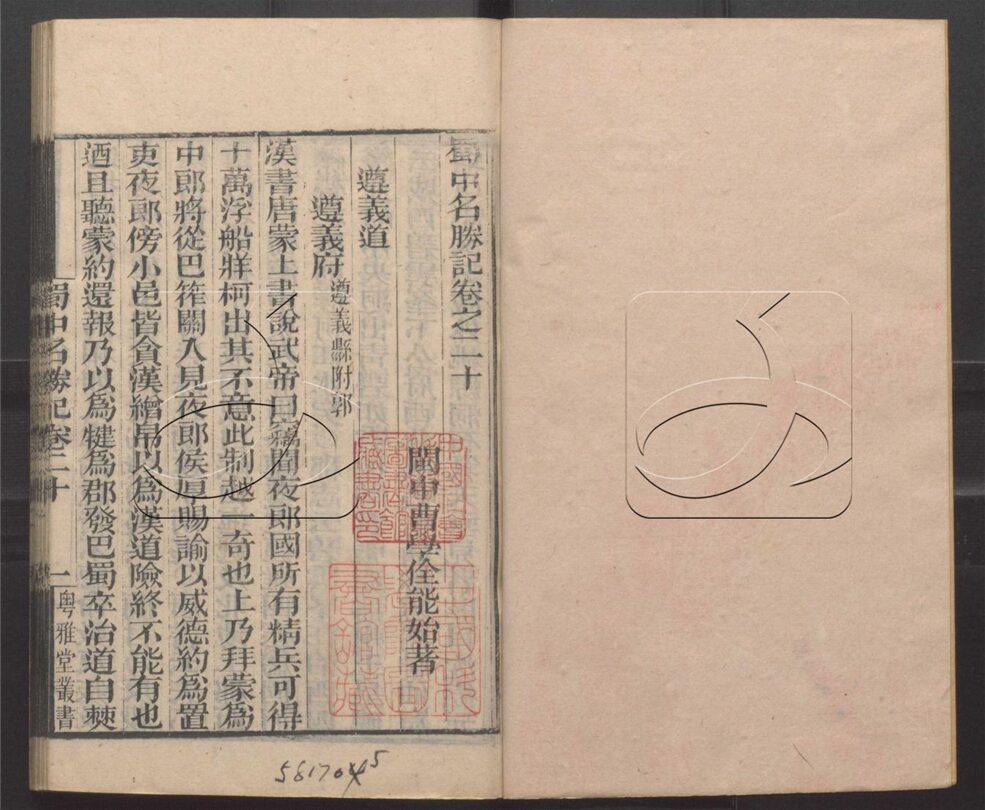 蜀中名勝記卷之二十
閩中曹學佺能始著
遵義道
遵義府遵義縣附郭
漢書唐蒙上書說武帝曰竊聞夜郎國所有精兵可得
十萬浮船牂柯出其不意此制越一奇也上乃拜蒙為
中郎將從巴筰關入見夜郎侯厚賜諭以威德約為置
吏夜郎傍小邑皆貪漢繒帛以為漢道險終不能有也
迺且聽蒙約還報乃以為犍為郡發巴蜀卒治道自僰
蜀中名勝記卷二十
一
粤雅堂叢書